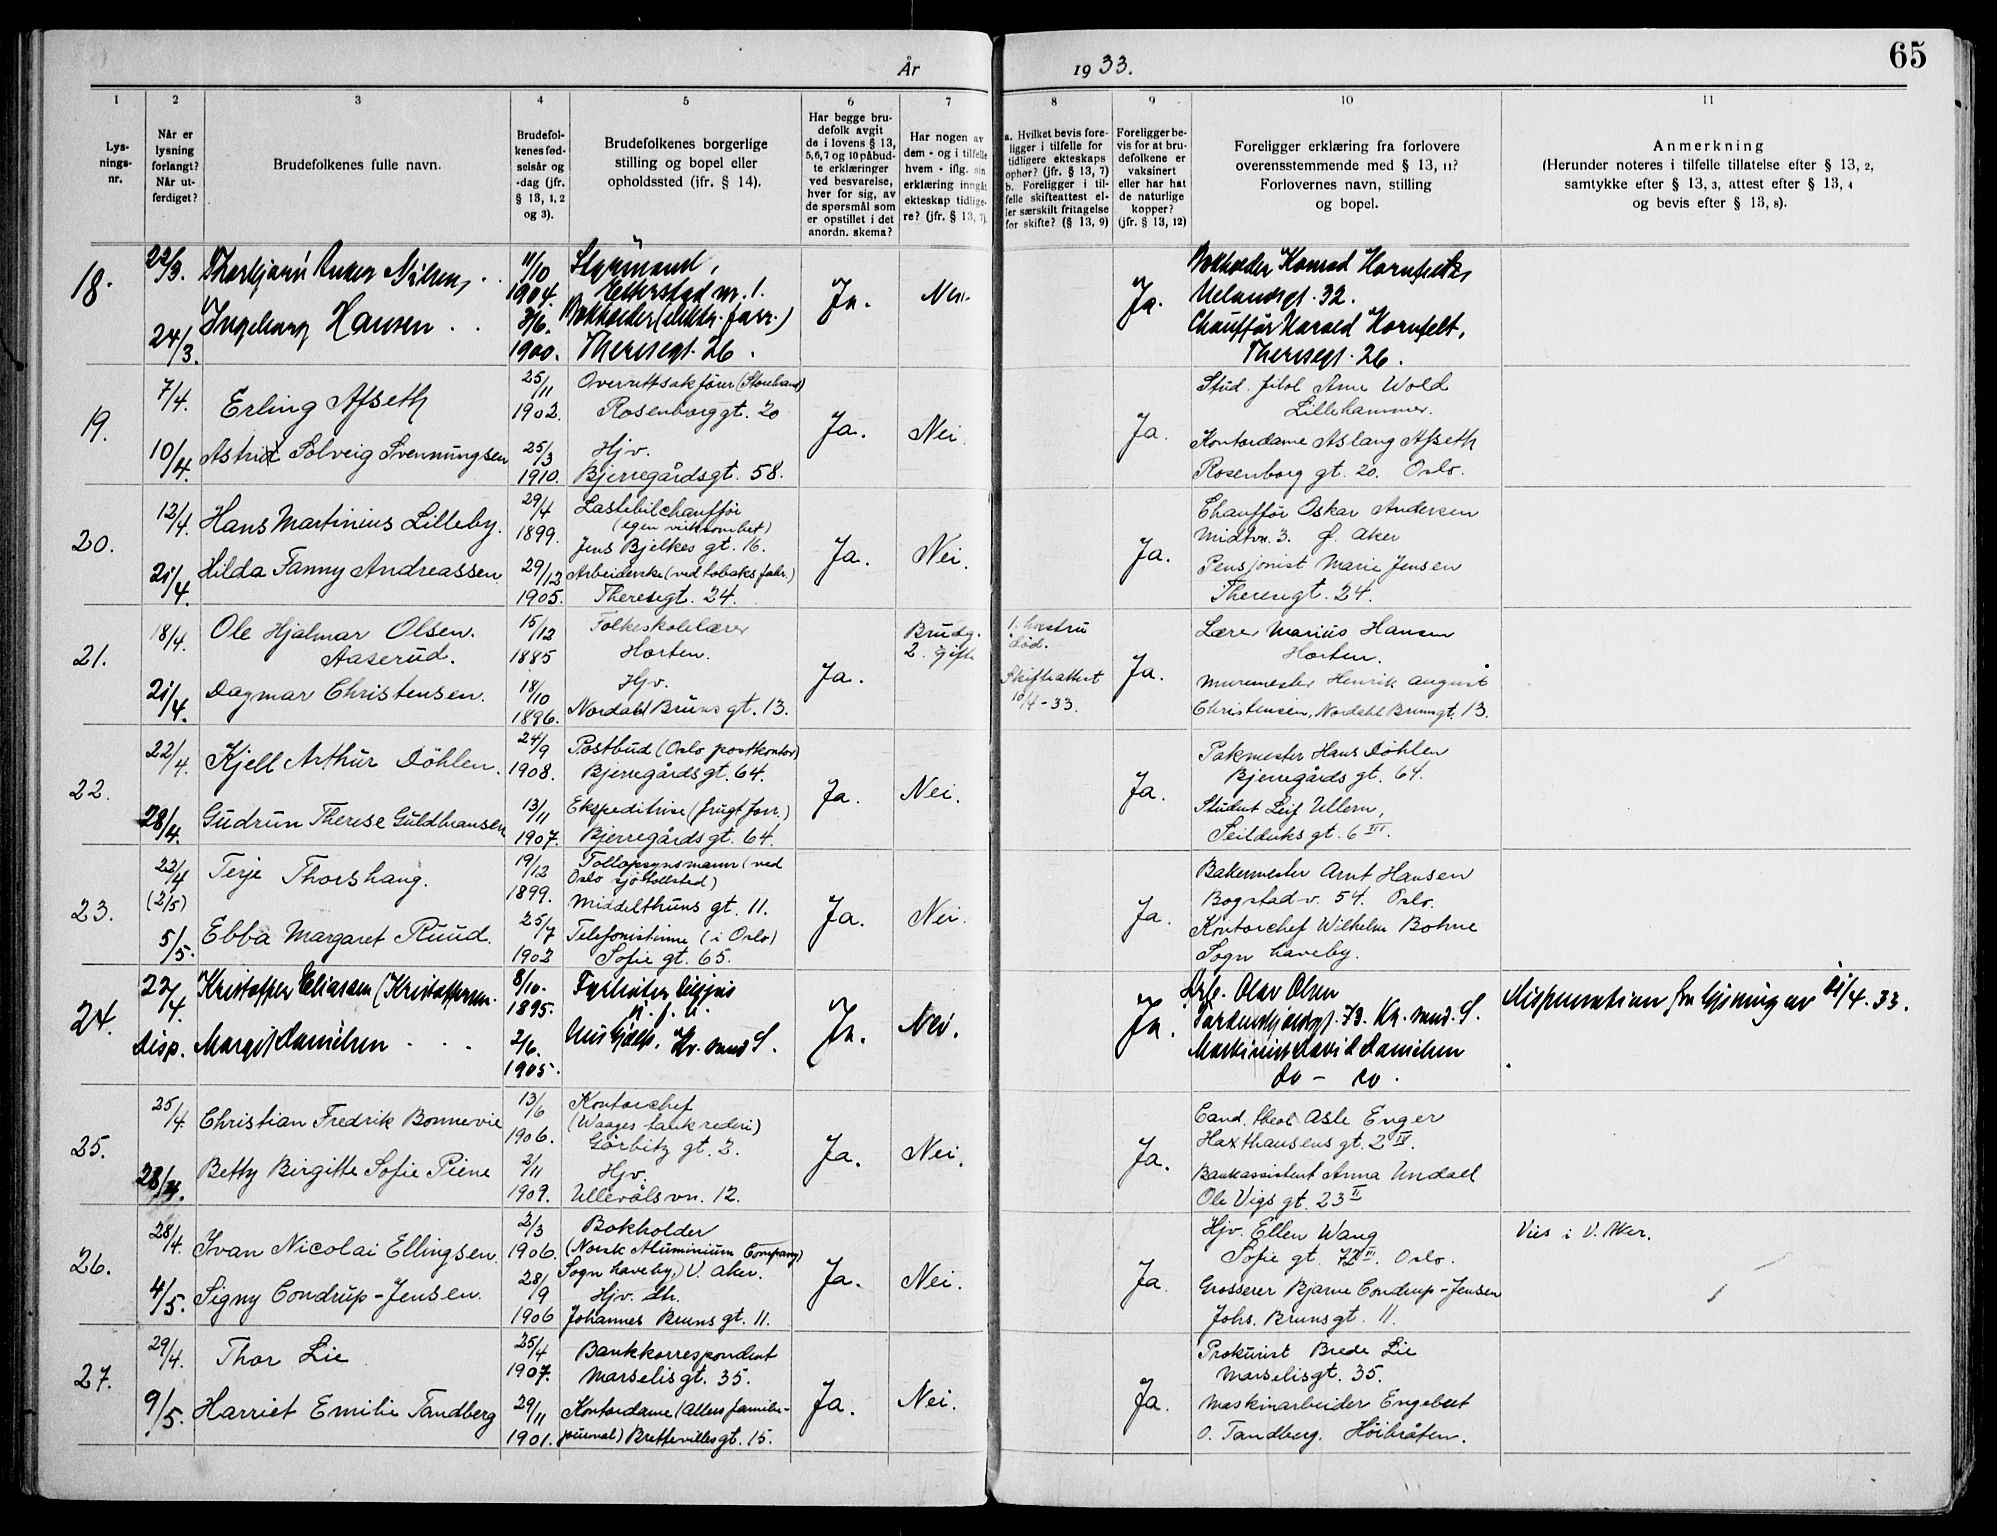 65
År 1933.
1 2 3 4 5 6 7 8 9 10 11
Lys-
nings-
nr.
Når er
lysning
forlangt?
Når ut-
ferdiget?
Brudefolkenes fulle navn.
Brudefol-
kenes fød-
selsår og
-dag (jfr.
§ 13, 1, 2
og 3).
Brudefolkenes borgerlige
stilling og bopel eller
opholdssted (jfr. § 14).
Har begge bru-
defolk avgit
de i lovens § 13,
5,6,7 og 10 påbud-
te erklæringer
ved besvarelse,
hver for sig, av
de spørsmål som
er opstillet i det
anordn. skema?
Har nogen av
dem - og i tilfelle
hvem - iflg. sin
erklæring inngåt
ekteskap tidlige-
re? (jfr. § 13, 7).
a. Hvilket bevis fore-
ligger i tilfelle for
tidligere ekteskaps
ophør? (jfr. § 13, 7)
b. Foreligger i til-
felle skifteattest el-
ler særskilt fritagelse
for skifte? (§ 13, 9)
Foreligger be-
vis for at bru-
defolkene er
vaksinert
eller har hat
de naturlige
kopper?
(jfr. § 13, 12)
Foreligger erklæring fra forlovere
overensstemmende med § 13, 11?
Forlovernes navn, stilling
og bopel.
Anmerkning
(Herunder noteres i tilfelle tillatelse efter § 13, 2,
samtykke efter § 13, 3, attest efter § 13, 4
og bevis efter § 13, 8).
18.
22/3.
24/3.
Thorbjørn Nilsen,
Ingeborg Hansen
11/10
1904.
2/6.
1900.
Styrmand,
Etterstad nr. 1.
Bokholder
Theresegt. 26.
Ja.
Nei.
Ja.
Bokholder Konrad Hornfelt,
Uelandsgt. 32.
Chauffør Harald Hornfelt,
Theresegt. 26.
19.
7/4.
10/4.
Erling Afseth
Astrid Solveig Svenningsen
25/11
1902.
25/3
1910.
Overrettsakfører (Storebrand)
Rosenborggt. 20
Hjv.
Bjerregårdsgt. 58.
Ja.
Nei.
Ja.
Stud. filol Arne Wold
Lillehammer.
Kontordame Aslaug Afseth
Rosenborg gt. 20. Oslo.
20.
12/4.
21/4.
Hans Martinius Lilleby.
Hilda Fanny Andreassen
29/4
1899.
29/12
1905.
Lastebilchauffør
(egen virksomhet)
Jens Bjelkes gt. 16.
Arbeiderske (ved tobaksfabr.)
Theresegt. 24.
Ja.
Nei.
Ja.
Chauffør Oskar Andersen
Midtvn. 3. Ø. Aker
Pensjonist Marie Jensen
Theresegt. 24.
21.
18/4.
21/4.
Ole Hjalmar Olsen.
Aaserud.
Dagmar Christensen.
15/12
1885
18/10
1896.
Folkeskolelærer
Horten.
Hjv.
Nordahl Bruns gt. 13.
Ja.
Brudg.
2. gift
1. hustru
død.
Skifteattest
10/4-33.
Ja.
Lærer Marius Hansen
Horten.
Muremester Henrik August
Christensen, Nordahl Brunsgt. 13.
22.
22/4.
28/4.
Kjell Arthur Döhlen.
Gudrun Therese Guldbransen
24/9
1908.
13/11
1907.
Postbud (Oslo postkontor)
Bjerregårdsgt. 64.
Ekspeditrise (frugtforr.)
Bjerregårdsgt. 64.
Ja.
Nei.
Ja.
Pakmester Hans Döhlen
Bjerregårds gt. 64.
Student Leif Ullern,
Seilduksgt. 6 III.
23.
22/4
(2/5)
5/5.
Terje Thorshaug.
Ebba Margaret Ruud.
19/12
1899.
25/7
1902
Tollopsynsmann (ved
Oslo sjøtollsted)
Middelthuns gt. 11.
Telefonistinne (i Oslo)
Sofie gt. 65.
Ja.
Nei.
Ja.
Bakermester Arnt Hansen
Bogstadv. 54. Oslo.
Kontorchef Wilhelm Bohne
Sogn haveby.
24.
22/4.
Disp.
Kristoffer Eliassen (Kristoffersen.
Margit Danielsen
8/10.
1895.
2/6.
1905.
Kr. sand S.
Ja.
Nei.
Ja.
Olav Olsen
Tordenskjoldsgt. 73. Kr. sand. S.
Maskinist David Danielsen
do - do.
Dispensation fra lysning av 21/4. 33.
25.
25/4
28/4.
Christian Fredrik Bonnevie
Betty Birgitte Sofie Piene
13/6
1906.
2/11
1909.
Kontorchef
(Waages tankrederi)
Gørbitz gt. 2.
Hjv.
Ullevålsvn. 12.
Ja.
Nei.
Ja.
Cand. theol. Asle Enger
Haxthausens gt. 2 IV.
Bankassistent Anna Undall
Ole Vigs gt. 23 II
26.
28/4.
4/5.
Ivan Nicolai Ellingsen.
Signy Condrup-Jensen.
2/3
1906.
28/9
1906
Bokholder
(Norsk Aluminium Company)
Sogn haveby,) V. Aker.
Hjv. dtr.
Johannes Bruns gt. 11.
Ja.
Nei.
Ja.
Hjv. Ellen Wang
Sofie gt. 72 III. Oslo.
Grosserer Bjarne Condrup-Jensen
Johs. Brunsgt. 11.
Vies i V. Aker.
27.
29/4.
9/5.
Thor Lie
Harriet Emilie Tandberg
25/4
1907.
29/11
1901.
Bankkorrespondent
Marselisgt. 35.
Kontordame (Allers familie-
journal) Brettevillesgt. 15.
Ja.
Nei.
Ja.
Prokurist Brede Lie
Marselisgt. 35.
Maskinarbeider Engebret
O. Tandberg. Høibråten.